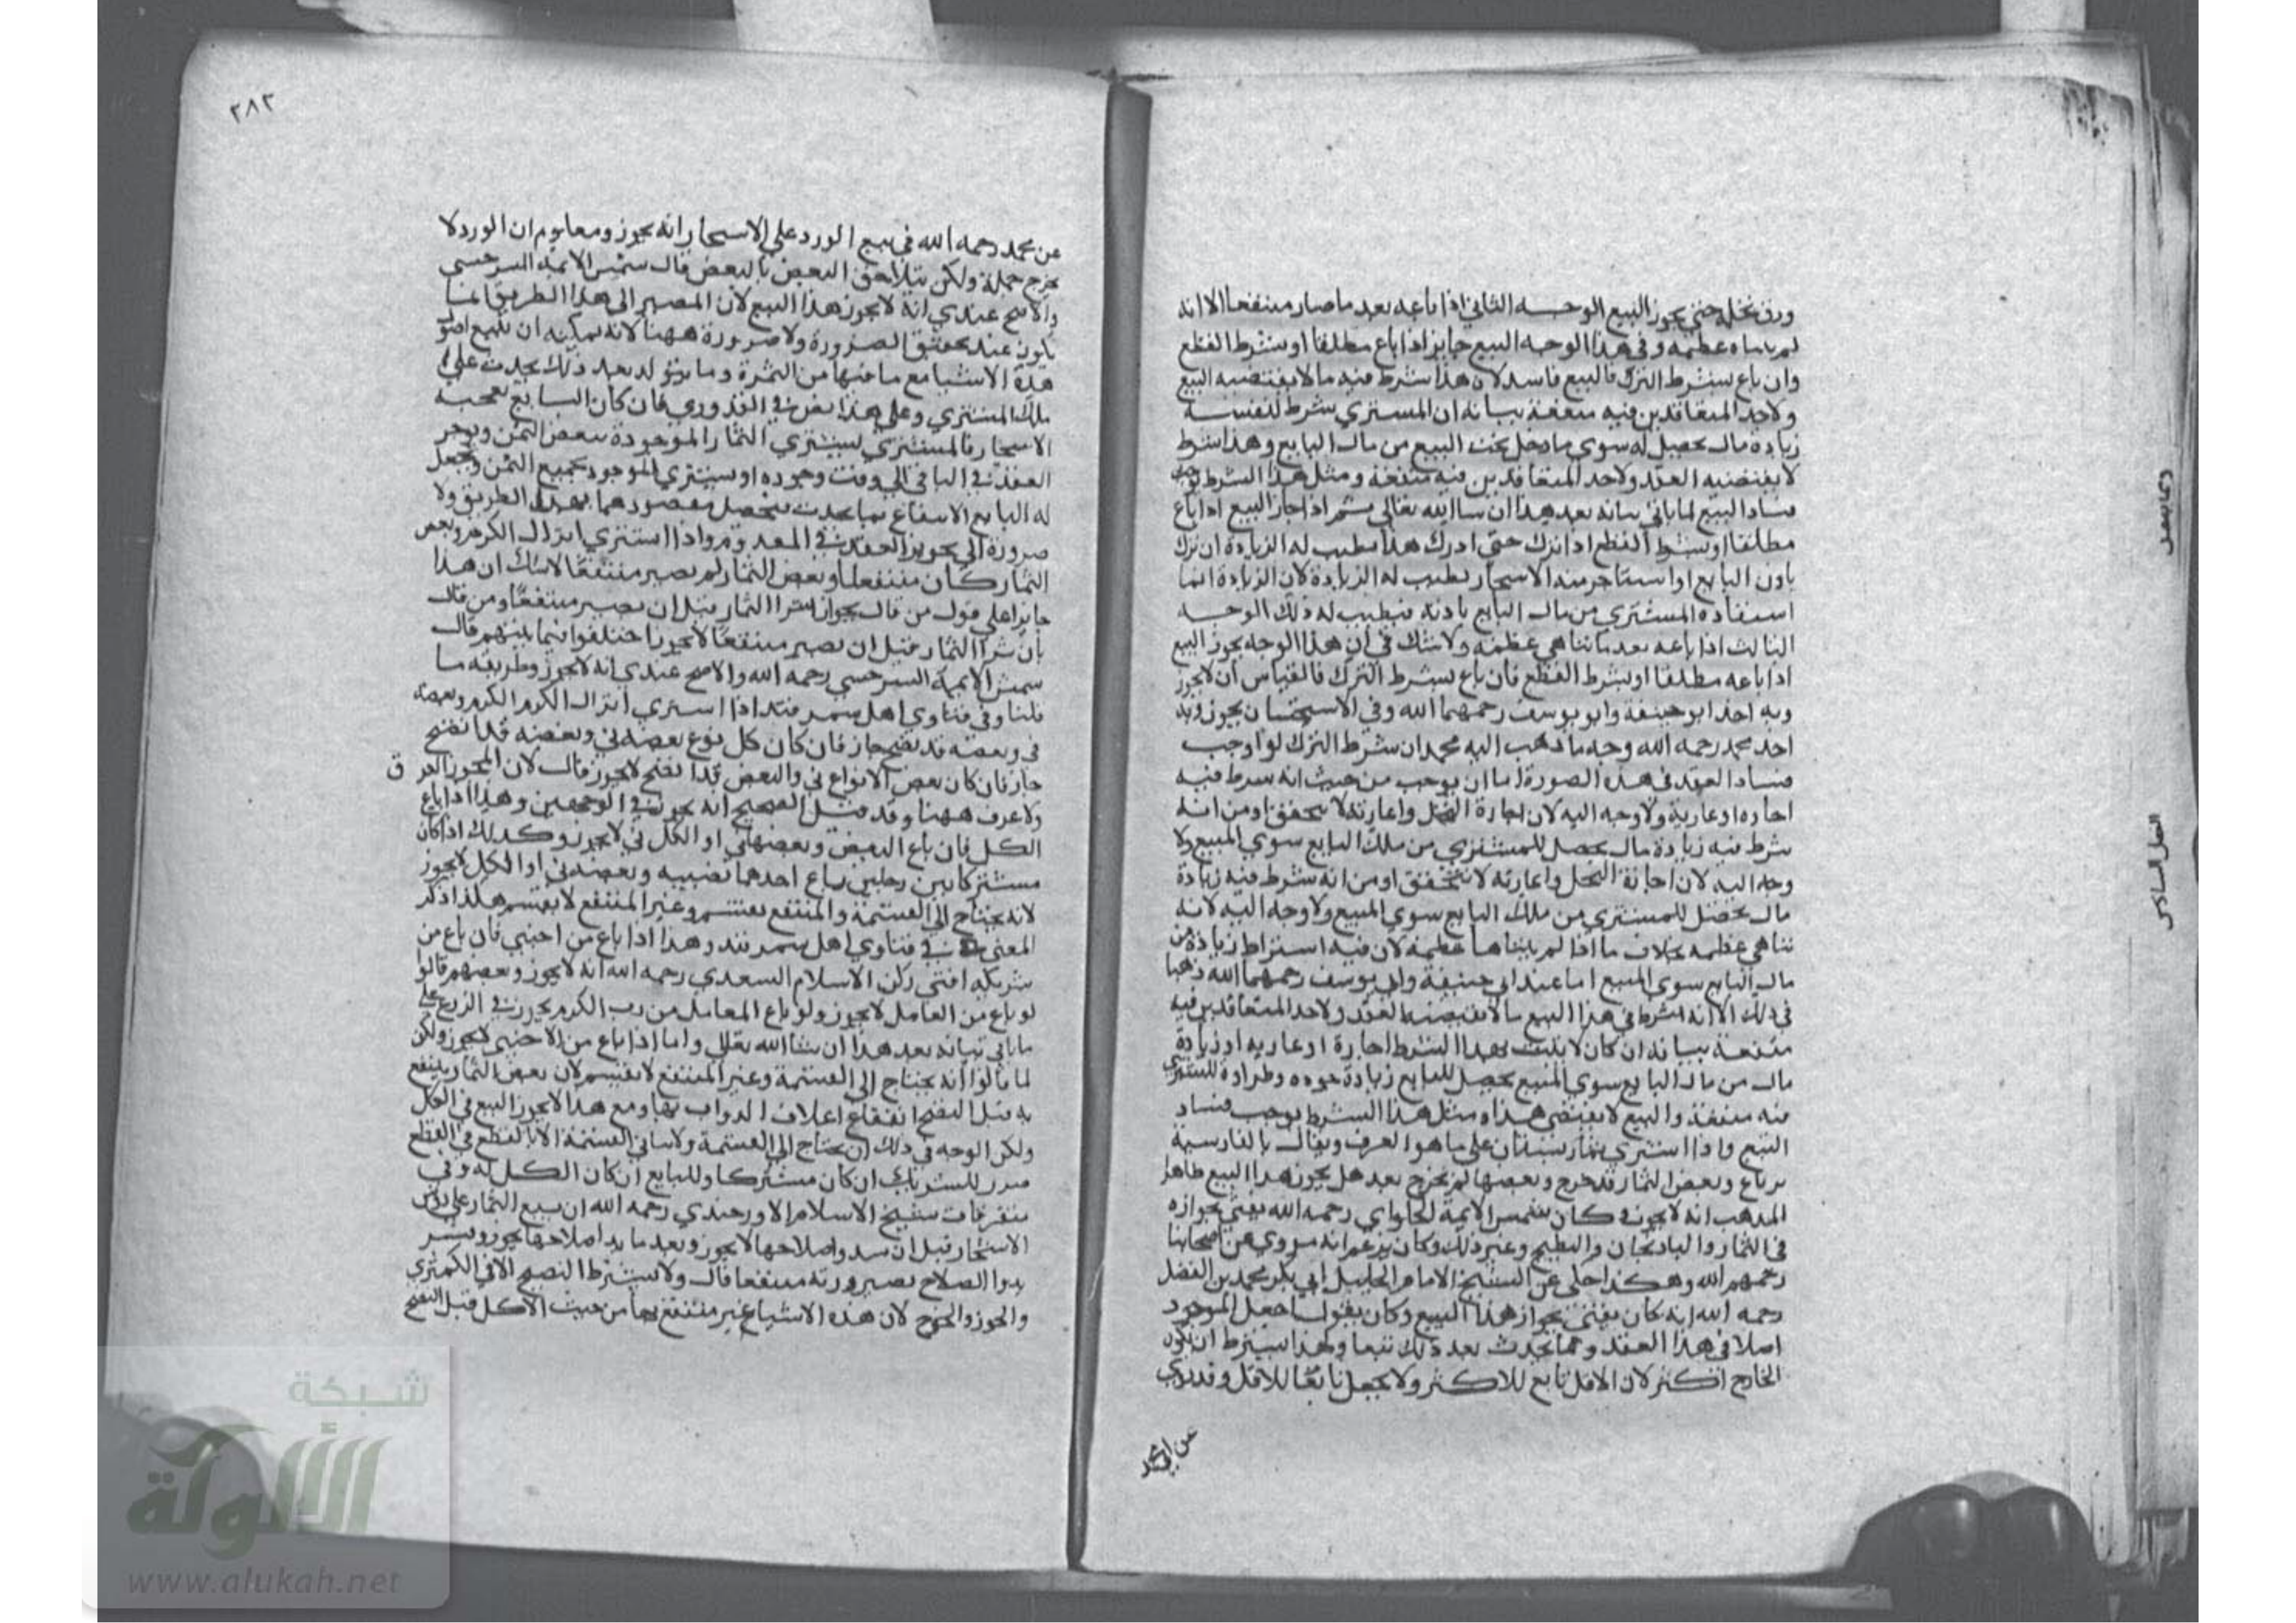 ورق نخله حتى يجوز البيع الوجه الثاني اذا باعه بعد ما صار منتفعا الا انه
لم يتناه عظمه وفي هذا الوجه البيع جايز اذا باع مطلقا او بشرط القطع
وان باع بشرط الترك فالبيع فاسد لان هذا شرط فيه ما لا يقتضيه البيع
ولاحد المتعاقدين فيه منفعة بيانه ان المشتري شرط لنفسه
زيادة مال يحصل له سوي ما دخل تحت البيع من مال البايع وهذا شرط
لا يقتضيه العقد ولاحد المتعاقدين فيه منفعة ومثل هذا الشرط يوجب
فساد البيع لما ياتي بيانه بعد هذا ان شا الله تعالى ثم اذا جاز البيع اذا باع
مطلقا او بشرط القطع اذا ترك حتى ادرك هل يطيب له الزيادة ان ترك
باذن البايع او استاجر منه الاشجار يطيب له الزيادة لان الزيادة انما
استفاده المشتري من مال البايع باذنه فيطيب له ذلك الوجه
الثالث اذا باعه بعد ما تناهي عظمه ولا شك في ان هذا الوجه يجوز البيع
اذا باعه مطلقا او بشرط القطع فان باع بشرط الترك فالقياس ان لا يجوز
وبه اخذ ابو حنيفة وابو يوسف رحمهما الله وفي الاستحسان يجوز وبه
اخذ محمد رحمه الله وجه ما ذهب اليه محمد ان شرط الترك لو اوجب
فساد العقد في هذه الصورة اما ان يوجب من حيث انه شرط فيه
اجارة او عارية ولا وجه اليه لان اجارة النخل واعارته لا يتحقق او من انه
شرط فيه زيادة مال يحصل للمشتري من ملك البايع سوي المبيع ولا
وجه اليه لان اجازة النخل واعارته لا يتحقق او من انه شرط فيه زيادة
مال يحصل للمشتري من ملك البايع سوي المبيع ولا وجه اليه لانه
تناهي عظمه بخلاف ما اذا لم يتناها عظمه لان فيه اشتراط زيادة من
مال البايع سوي المبيع اما عند ابي حنيفة وابي يوسف رحمهما الله ذهبا
في ذلك الا انه شرط في هذا البيع ما لا يقتضيه العقد ولاحد المتعاقدين فيه
منفعة بيانه ان كان لا يثبت بهذا الشرط اجارة او عارية او زيادة
مال من مال البايع سوي المبيع يحصل للبايع زيادة جوده وطراوة للمشتري
فيه منفعة والبيع لا يقتضى هذا ومثل هذا الشرط يوجب فساد
البيع واذا اشتري ثمار بستان على ما هو العرف ويقال بالفارسية
بر باغ وبعض الثمار قد خرج وبعضها لم يخرج بعد هل يجوز هذا البيع ظاهر
المذهب انه لا يجوز وكان شمس الايمة الحلواي رحمه الله يفتي بجوازه
في الثمار والبادنجان والبطيح وغير ذلك وكان يزعم انه مروي عن اصحابنا
رحمهم الله وهكذا حكي عن الشيخ الامام الجليل ابي بكر محمد بن الفضل
رحمه الله انه كان يفتي بجواز هذا البيع وكان يقول اجعل الموجود
اصلا في هذا العقد وما يحدث بعد ذلك تبعا ولهذا يشترط ان يكون
الخارج اكثر لان الاقل تابع للاكثر ولا يجعل تابعا للاقل وقد روي
٢٨٢
عن محمد رحمه الله في بيع الورد على الاشجار انه يجوز ومعلوم ان الورد لا
يخرج جملة ولكن يتلاحق البعض بالبعض قال شمس الايمة السرخسي
والاصح عندي انه لا يجوز هذا البيع لان المصير الى هذا الطريق انما
يكون عند تحقق الضرورة ولا ضرورة ههنا لانه يمكنه ان يبيع اصول
هذه الاشيا مع ما فيها من الثمرة وما يتولد بعد ذلك يحدث على
ملك المشتري وعلى هذا نص في القدوري فان كان البايع يعجبه
الاشجار فالمشتري يشتري الثمار الموجودة ببعض الثمن ويوخر
العقد في الباقي الى وقت وجوده او يشتري الموجود بجميع الثمن ويجعل
له البايع الانتفاع بما يحدث فيحصل مقصودهما بهذا الطريق ولا
ضرورة الى تجويز العقد في المعدوم واذا اشتري انزال الكرم وبعض
الثمار كان منتفعا وبعض الثمار لم يصير منتفعا لا شك ان هذا
جايزا على قول من قال بجواز شرا الثمار قبل ان يصير منتفعا ومن قال
بان شرا الثمار قبل ان يصير منتفعا لا يجوز اختلفوا فيما بينهم قال
شمس الايمة السرخسي رحمه الله والاصح عندي انه لا يجوز وطريقه ما
قلنا وفي فتاوي اهل سمرقند اذا اشتري انزال الكرم الكرم وبعضه
ني وبعضه قد نضج جاز فان كان كل نوع بعضه ني وبعضه قد نضج
جاز فان كان بعض الانواع ني والبعض قد نضج لا يجوز قال لان المجوز العرف
ولا عرف ههنا وقد قيل الصحيح انه يجوز في الوجهين وهذا اذا باع
الكل فان باع البعض وبعضها ني او الكل ني لا يجوز وكذلك اذا كان
مشتركا بين رجلين باع احدهما نصيبه وبعضه ني او الكل لا يجوز
لانه يحتاج الى القسمة والمنتفع يقتسم وغير المنتفع لا يقتسم هكذا ذكر
المعنى في فتاوي اهل سمرقند وهذا اذا باع من اجنبي فان باع من
شريكه افتى ركن الاسلام السعدي رحمه الله انه لا يجوز وبعضهم قالوا
لو باع من العامل لا يجوز ولو باع المعامل من رب الكرم يجوز في الزرع على
ما ياتي بيانه بعد هذا ان شا الله تعالى واما اذا باع من الاجنبي لا يجوز ولكن
لما قالوا انه يحتاج الى القسمة وغير المنتفع لا يقتسم لان بعض الثمار ينتفع
به قبل النضج انتفاع اعلاف الدواب بها ومع هذا لا يجوز البيع في الكل
ولكن الوجه في ذلك ان يحتاج الى القسمة ولا ياتي القسمة الا بالقطع في القطع
ضرر للشريك ان كان مشتركا وللبايع ان كان الكل له وفي
متفرقات شيخ الاسلام الاورجندي رحمه الله ان بيع الثمار على روس
الاشجار قبل ان يبدو اصلاحها لا يجوز وبعد ما بدا صلاحها يجوز وتفسير
بدوا الصلاح بصيرورته منتفعا قال ولا يشترط النضج الا في الكمثري
والجوز والخوخ لان هذه الاشيا غير منتفع بها من حيث الاكل قبل النضج
شبكة
الألوكة
www.alukah.net